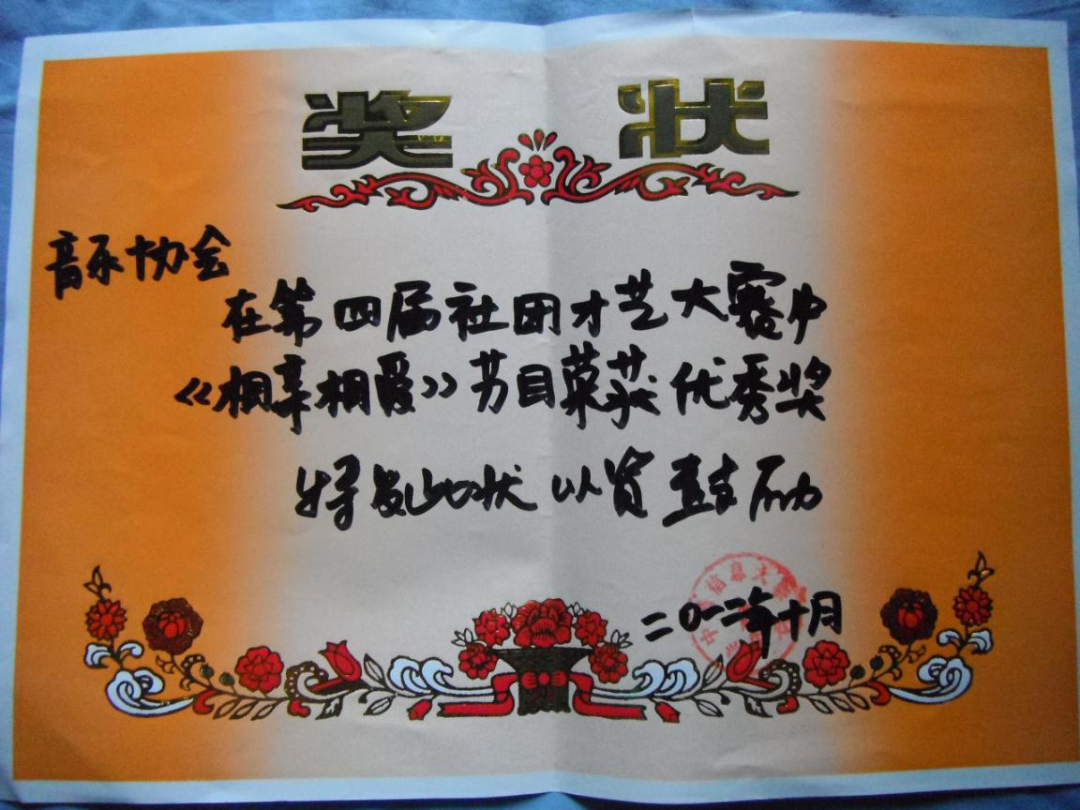 奖状
音乐协会
在第四届社团才艺大赛中
《相亲相爱》节目荣获优秀奖
特发此状 以资鼓励
二〇一二年十月